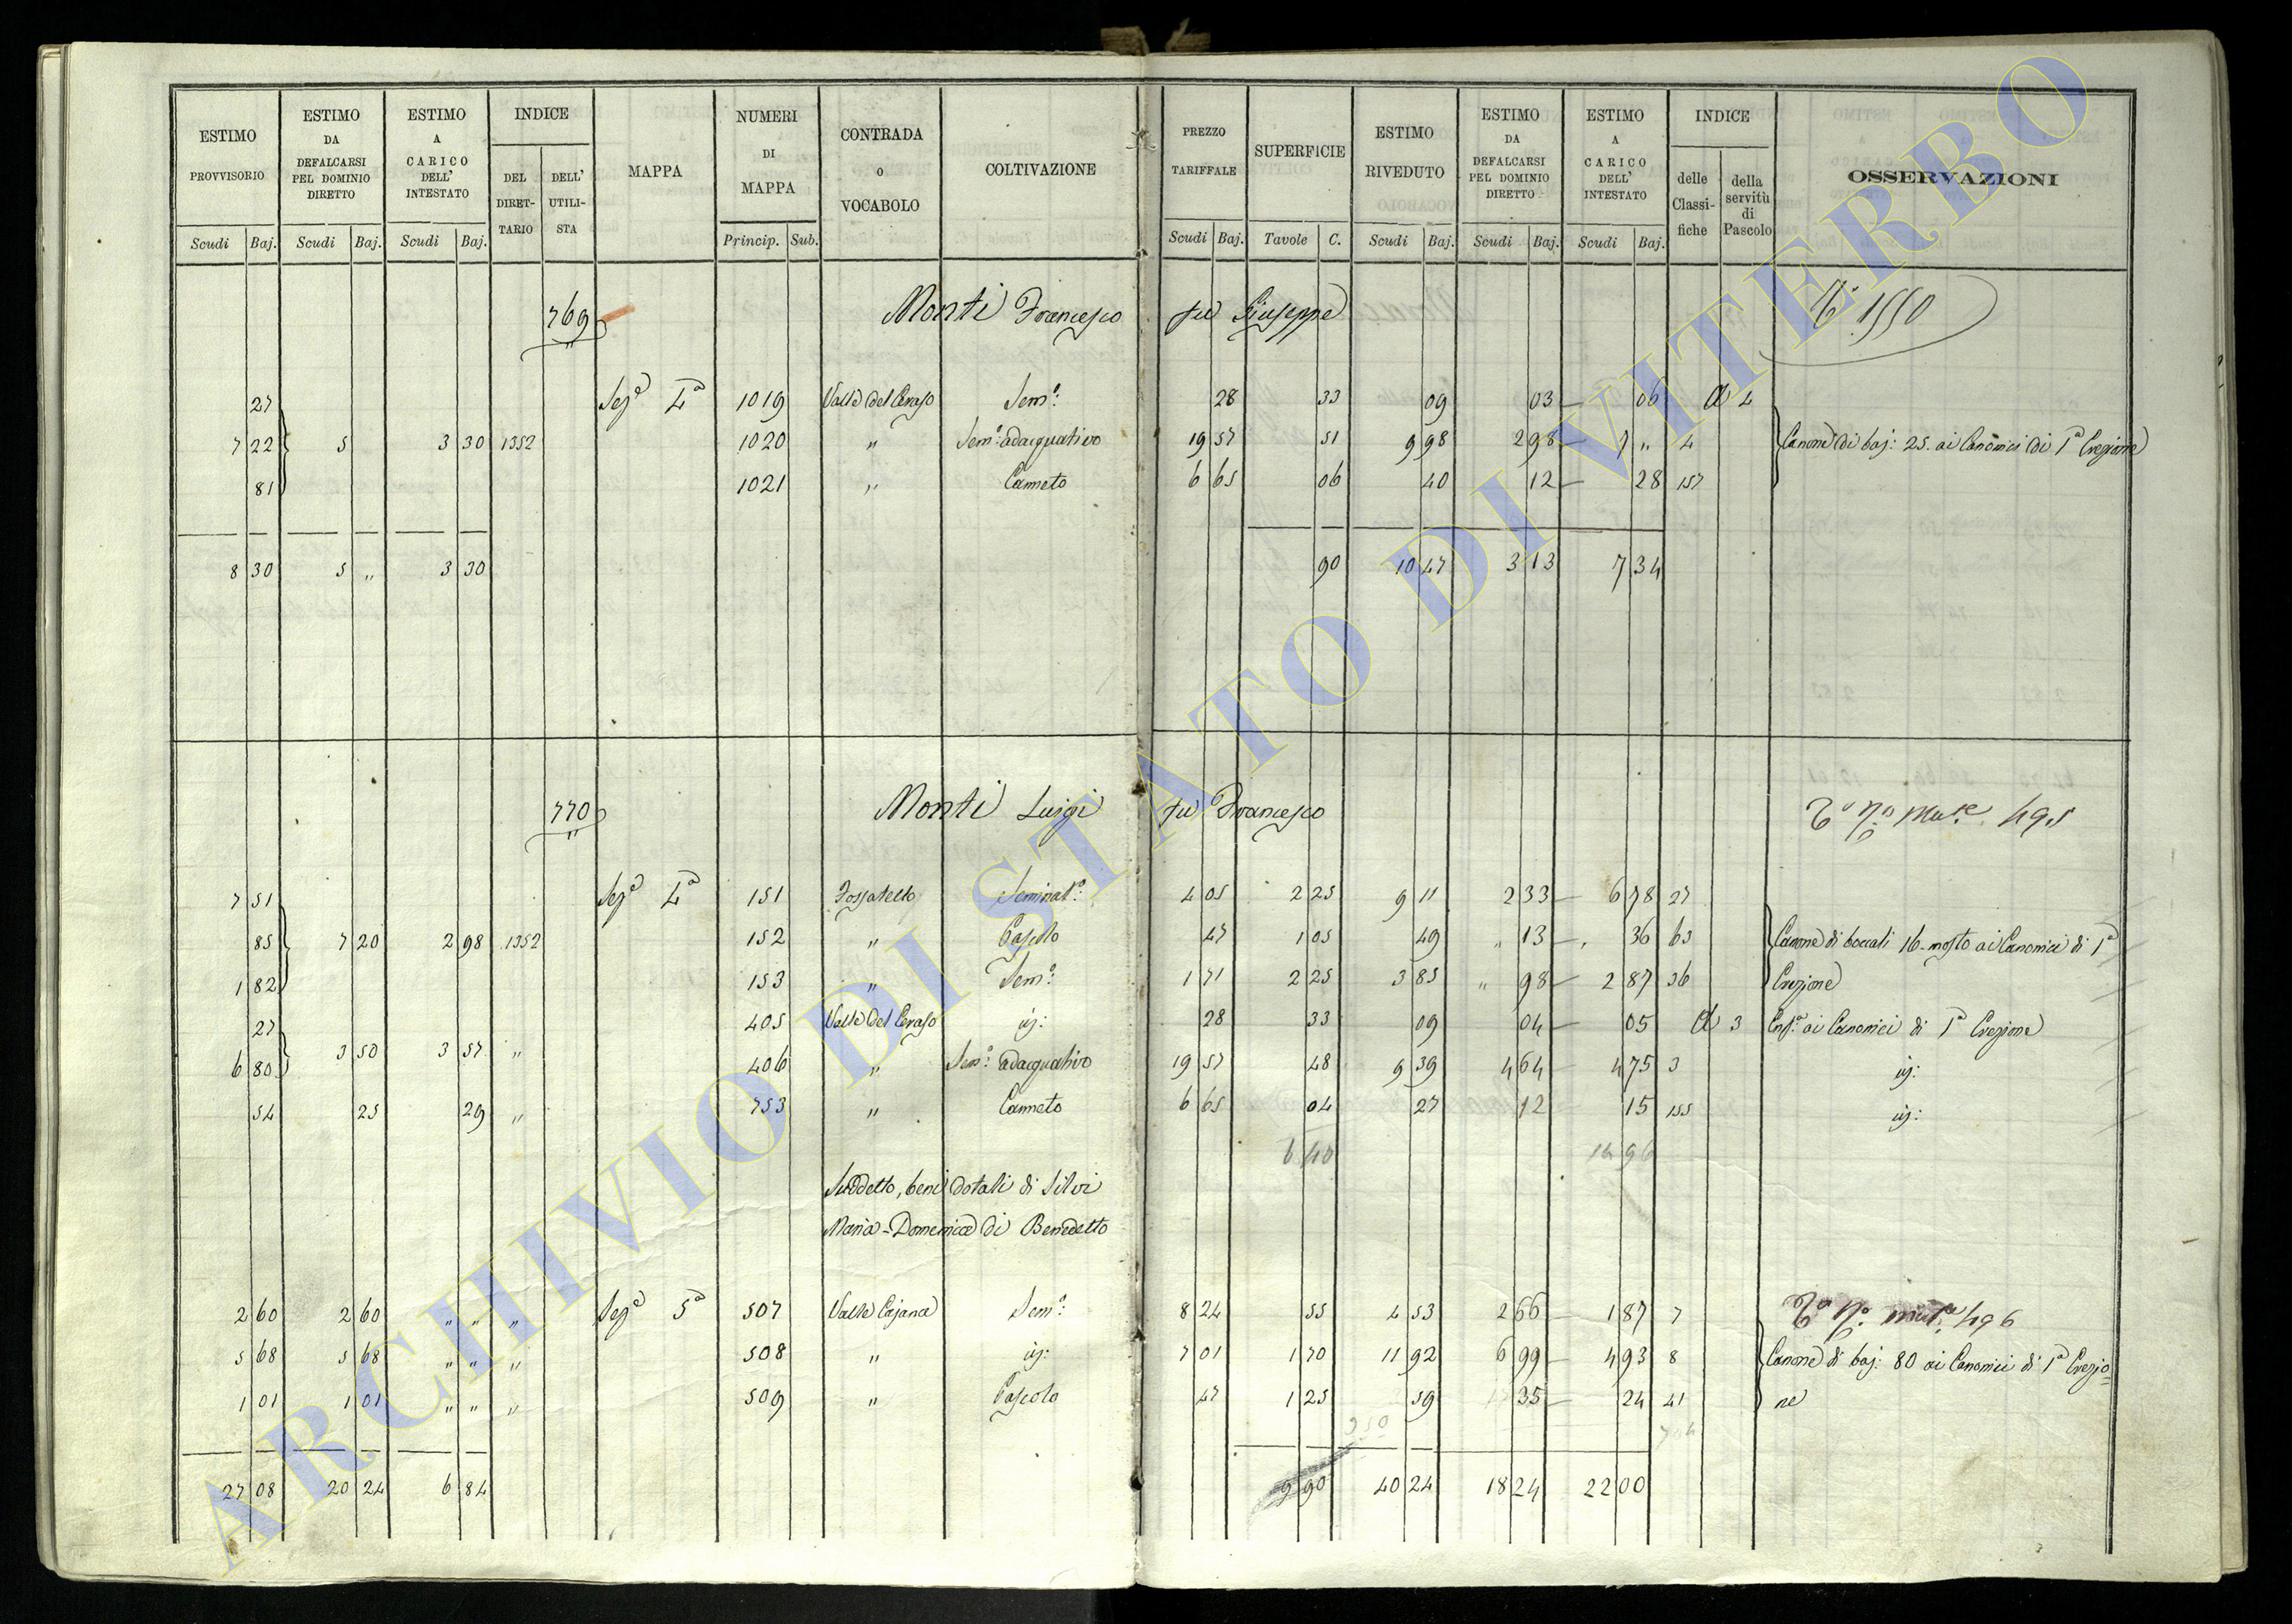 ESTIMO PROVVISORIO Scudi Baj.
ESTIMO DA DEFALCARSI PEL DOMINIO DIRETTO Scudi Baj.
ESTIMO A CARICO DELL' INTESTATO Scudi Baj.
INDICE DEL DIRET-TARIO DELL' UTILI-STA
MAPPA
NUMERI DI MAPPA Princip. Sub.
CONTRADA O VOCABOLO
COLTIVAZIONE
PREZZO TARIFFALE Scudi Baj.
SUPERFICIE Tavole C.
ESTIMO RIVEDUTO Scudi Baj.
ESTIMO DA DEFALCARSI PEL DOMINIO DIRETTO Scudi Baj.
ESTIMO A CARICO DELL' INTESTATO Scudi Baj.
INDICE delle Classi-fiche della servitù di Pascolo
OSSERVAZIONI
769 Monti Francesco fu Giuseppe 1550
27 Seze 4a 1019 Valle del Ceraso Semo: 28 33 09 03 06 A 4
7 22 5 3 30 1352 1020 " Semo: adacquativo 19 57 51 9 98 2 98 7 " 4 Canone di baj: 25. ai Canonici di 1a Erezione
81 1021 " Canneto 6 65 06 40 12 28 157
8 30 5 " 3 30 90 10 47 3 13 7 34
770 Monti Luigi fu Francesco 495
7 51 Seze 4a 151 Fossatello Seminato: 4 05 2 25 9 11 2 33 6 78 27
85 7 20 2 98 1352 152 " Pascolo 47 1 05 49 " 13 " 36 63 Canone di boccali 16 mosto ai Canonici di 1a
1 82 153 " Semo: 1 71 2 25 3 85 " 98 2 87 36 Erezione
27 405 Valle del Ceraso id: 28 33 09 04 05 A 3 Enfe: ai Canonici di 1a Erezione
6 80 3 50 3 57 " 406 " Semo: adacquativo 19 57 48 9 39 4 64 4 75 3 id:
54 25 29 " 753 " Canneto 6 65 04 27 12 15 155 id:
6 40 14 96
Suddetto, beni dotali di Silvi
Maria-Domenica di Benedetto
2 60 2 60 " " " Sezе 5a 507 Valle Cajana Semo: 8 24 55 4 53 2 66 1 87 7 496
5 68 5 68 " " " 508 " id: 7 01 1 70 11 92 6 99 4 93 8 Canone di baj: 80 ai Canonici di 1a Erezio=
1 01 1 01 " " " 509 " Pascolo 47 1 25 59 35 24 41 ne
3 50
27 08 20 24 6 84 9 90 40 24 18 24 22 00
ARCHIVIO DI STATO DI VITERBO